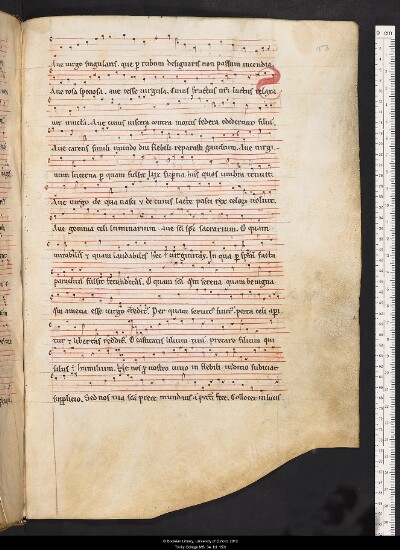 Aue uirgo singularis. que p rubum designaris non passum incendia.
Aue rosa speciosa. aue iesse uirgula. Cuius fructus nri luctus relaxa
uit uincula. Aue cuius uiscera contra mortis federa ediderunt filiu.
Aue carens simili mundo diu flebili reparasti gaudium. Aue uirgi
num lucerna p quam fulsit lux supna. his quos umbra tenuit.
Aue uirgo de qua nasci & de cuius lacte pasci rex celoꝝ uoluit.
Aue gemma celi luminarium. Aue sci sps sacrarium. O quam
mirabilis & quam laudabilis hec e uirginitas. In qua p spm facta
paraclitu fulsit fecunditas. O quam sca qm serena. quam benigna
qm amena esse uirgo creditr. Per quam seruit finitr. porta celi api
tur & libertas redditr. O castitatis lilium tuu precare filium qui
salus e humilium. Ne nos p nostro uitio in flebili iuditio subiciat
supplicio. Sed nos tua sca prece mundans a pcci fece. Collocet in lucis